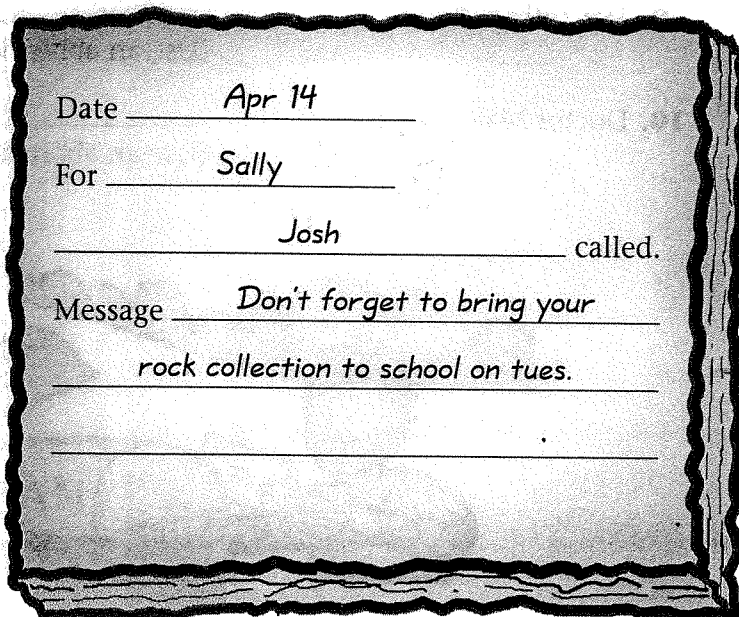 Date Apr 14
For Sally
Josh called.
Message Don't forget to bring your
rock collection to school on tues.